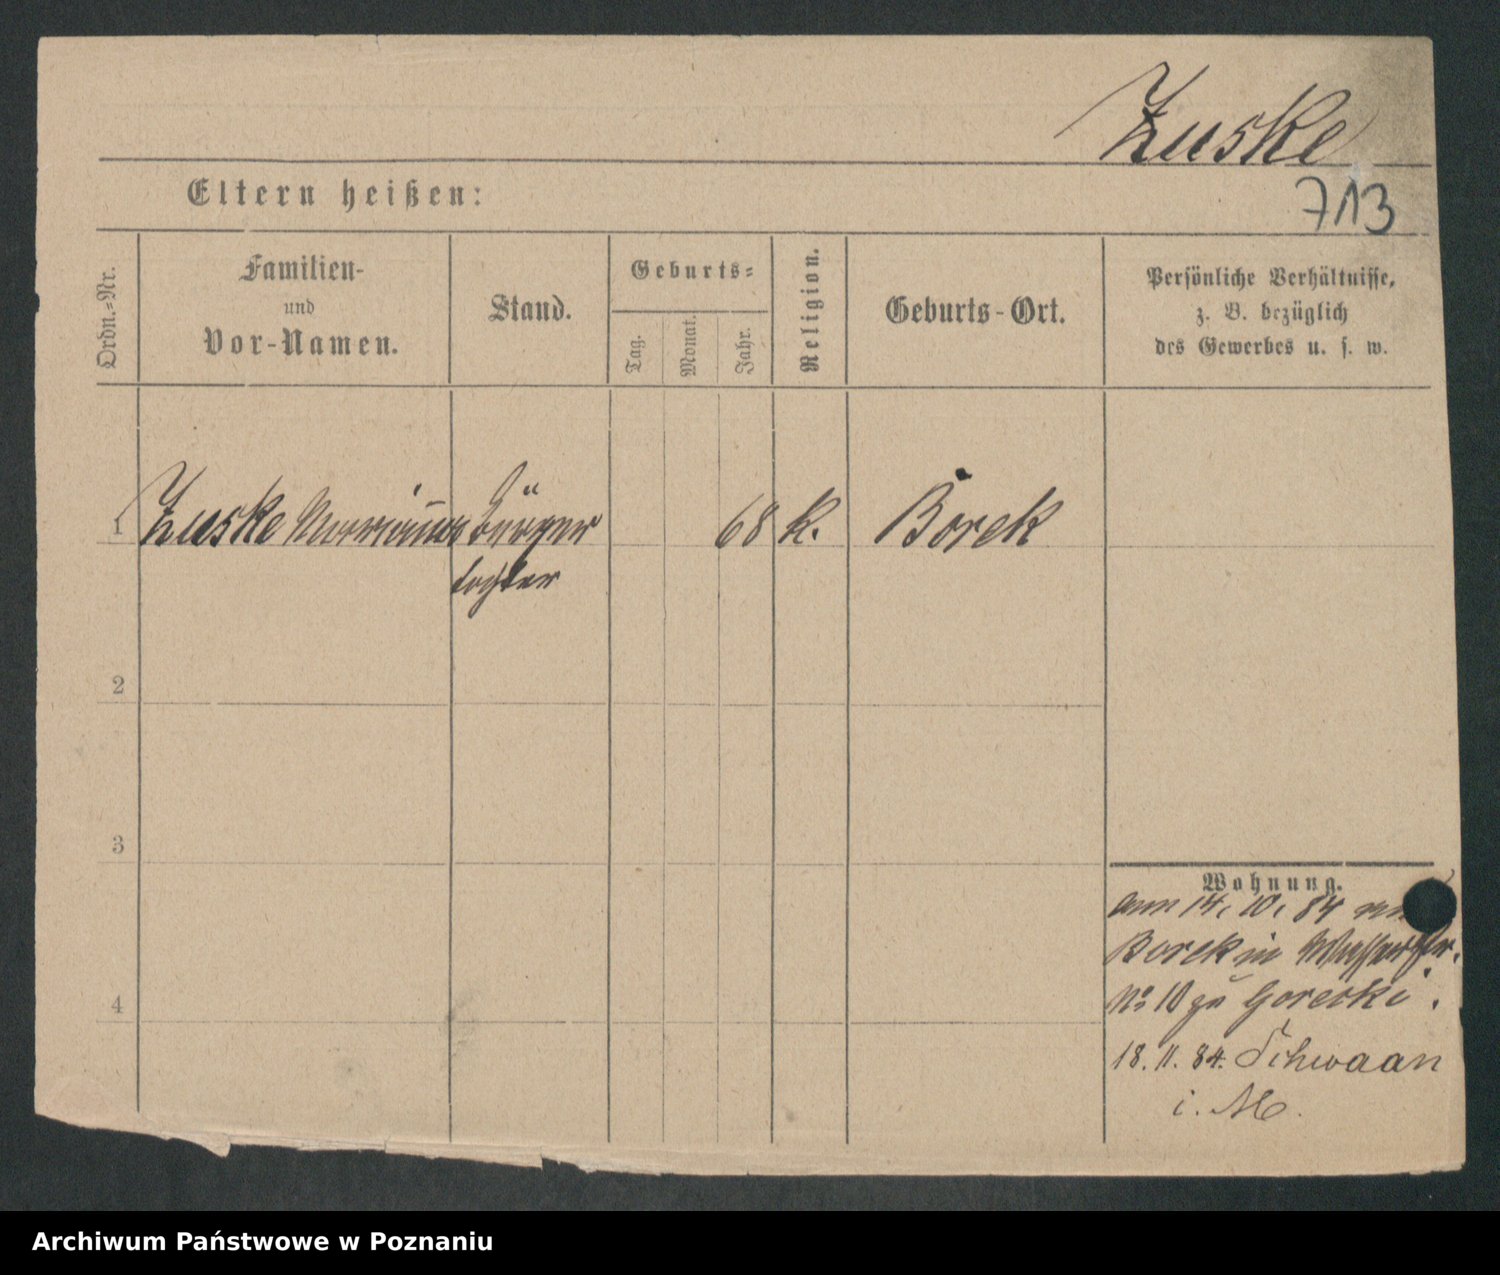 Zuske
713
Eltern heißen:
Ordn.-Nr.
Familien-
und
Vor-Namen.
Stand.
Geburts-
Tag.
Monat.
Jahr.
Religion.
Geburts-Ort.
Persönliche Verhältnisse,
z. B. bezüglich
des Gewerbes u. s. w.
1 Zuske Marianna Bürger 68 k. Borek
tochter
2
3
4
Wohnung.
am 14. 10. 84
Borek in
No 10 zu Gorecki.
18. 11. 84. Schwaan
i. M.
Archiwum Państwowe w Poznaniu